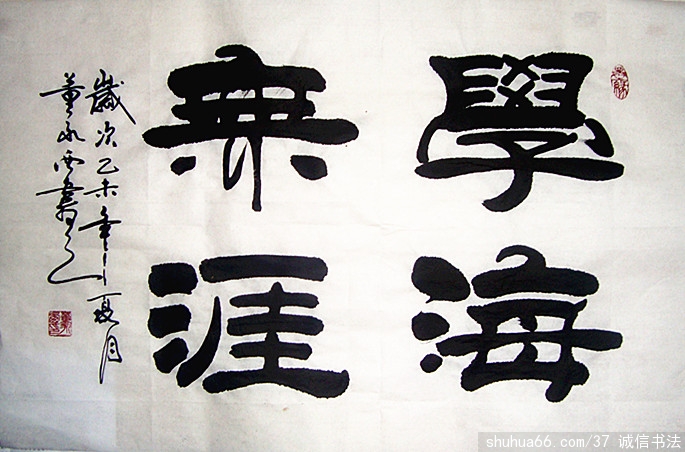 學海
無涯
歲次乙未年夏月
董永西書之
shuhua66.com/37 诚信书法